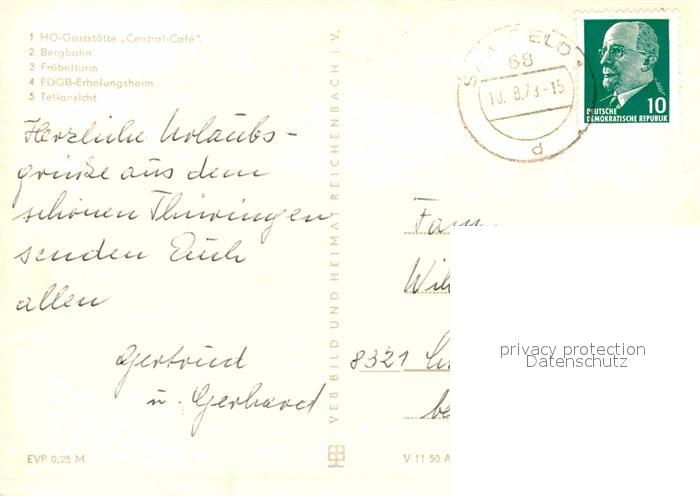 1 HO-Gaststätte „Central-Café"
2 Bergbahn
3 Fröbelturm
4 FDGB-Erholungsheim
5 Teilansicht
Herzliche Urlaubs-
grüße aus dem
schönen Thüringen
senden Euch
allen
Gertrud
u. Gerhard
EVP 0,25 M
VEB BILD UND HEIMAT REICHENBACH I. V.
V 11 50 A
SAALFELD
68
10. 8. 73.-15
d
10
DEUTSCHE
DEMOKRATISCHE REPUBLIK
Fam.
8321
privacy protection
Datenschutz